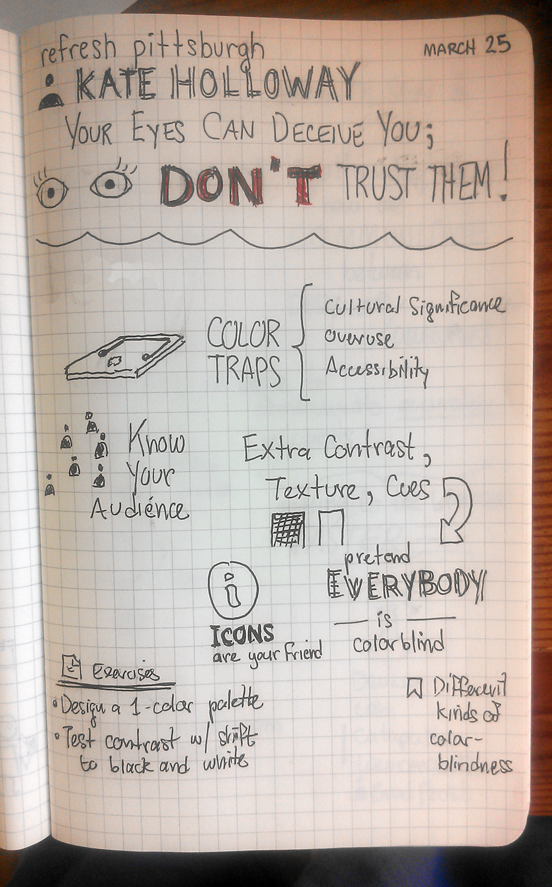 refresh pittsburgh
MARCH 25
KATE HOLLOWAY
YOUR EYES CAN DECEIVE YOU;
DON'T TRUST THEM!
COLOR
TRAPS
Cultural Significance
Overuse
Accessibility
Know
Your
Audience
Extra Contrast,
Texture, Cues
pretend
EVERYBODY
is
colorblind
i
ICONS
are your friend
Exercises
• Design a 1-color palette
• Test contrast w/ shift
to black and white
Different
kinds of
color-
blindness